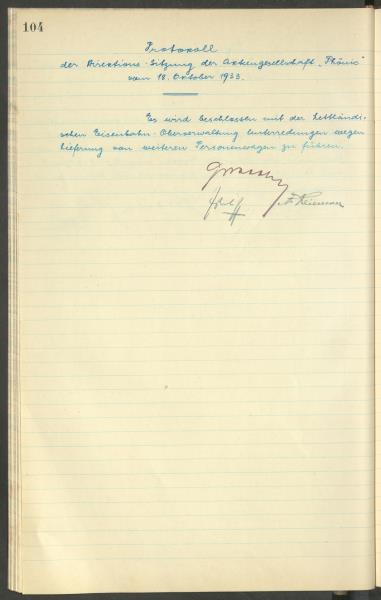 104
Protokoll
der Direktions-Sitzung der Aktiengesellschaft „Phönix"
vom 18. Oktober 1933.
Es wird beschlossen mit der Lettländi-
schen Eisenbahn-Oberverwaltung Unterredungen wegen
Lieferung von weiteren Personenwagen zu führen.